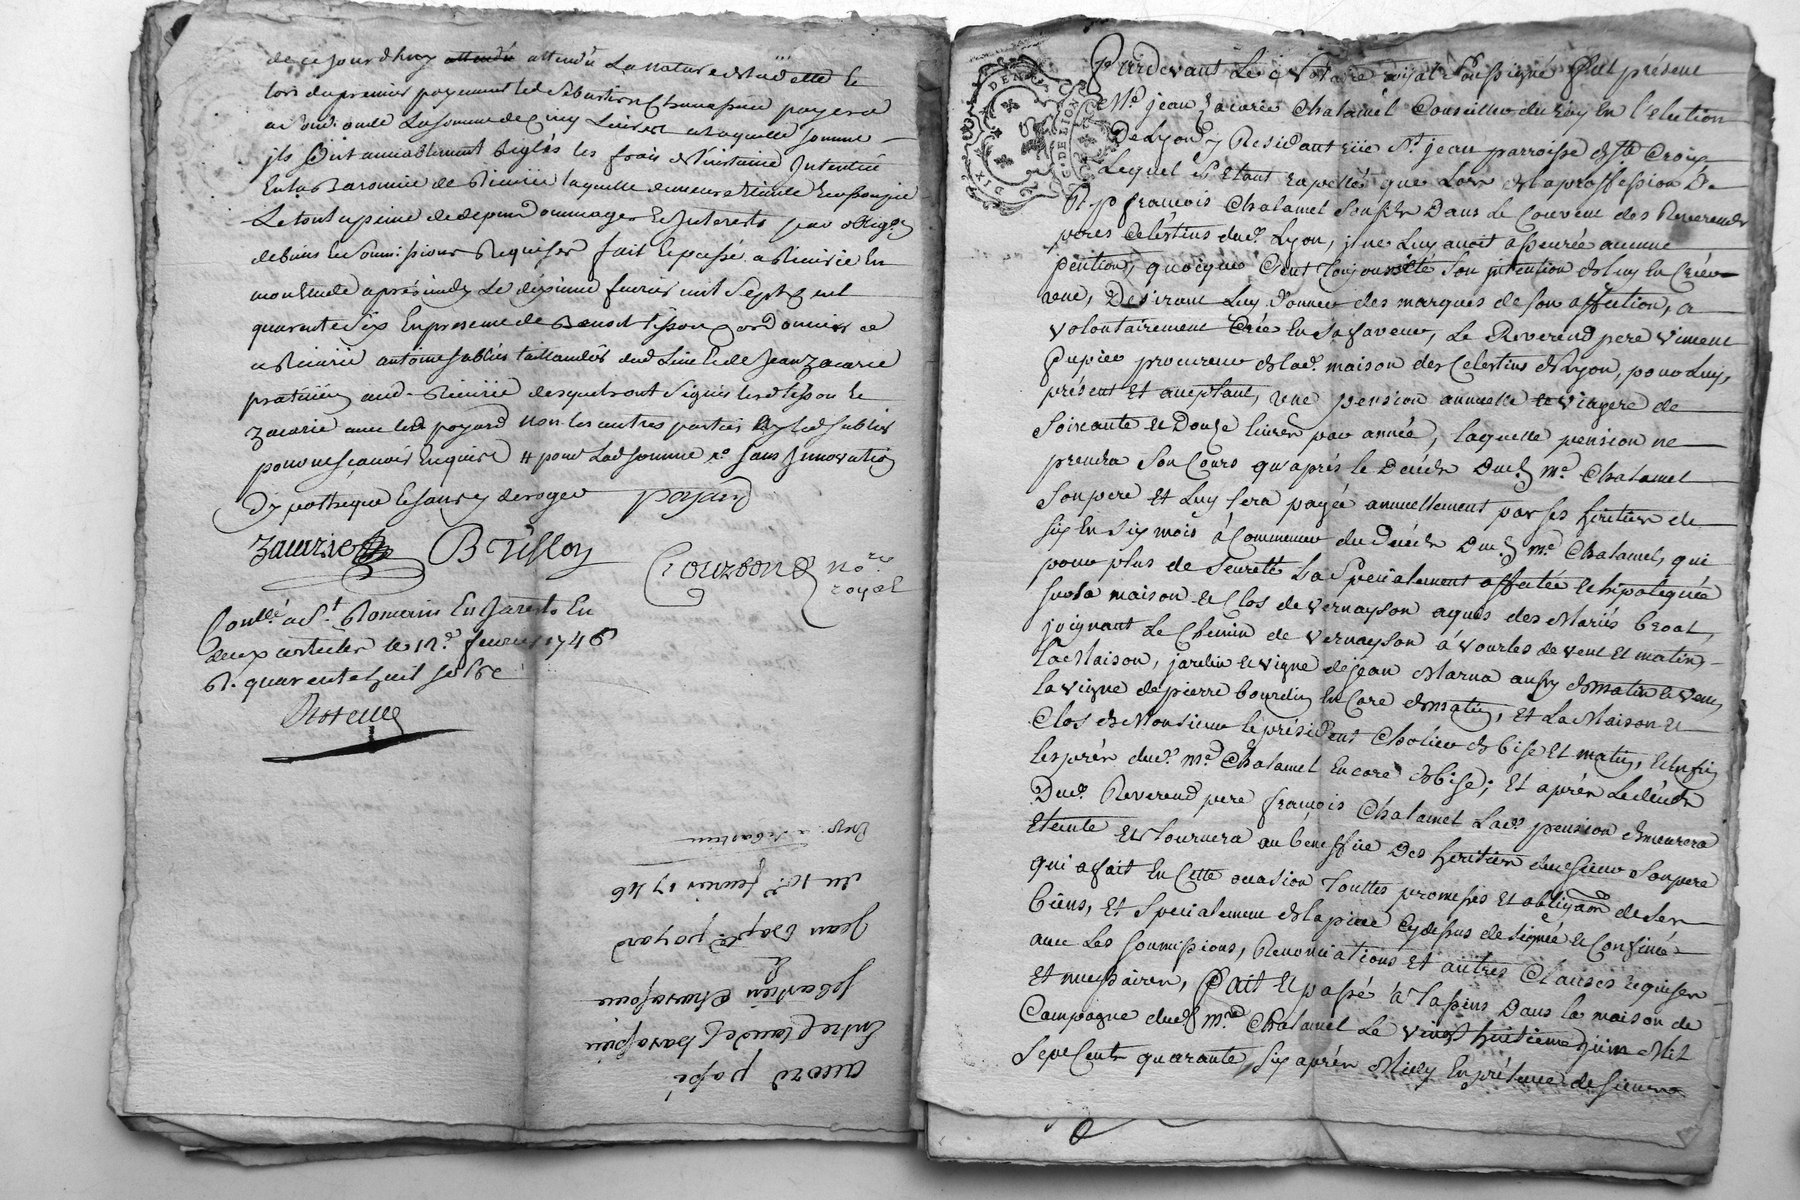 de ce jourdhuy attendu attendu La nature de lad dette Et
lors du premier payement led Sebastien Chavassieu payera
aud Claude La somme de Cinq Livres a laquelle somme
jls sont amiablement Reglés les frais de l'instance Intentée
En la Baronnie de Riverie laquelle demeure Eteinte Et assoupie
Le tout a peine de depens Dommages Et Interests par obligõn
de biens Et soumissions Requises fait Et passé a Riverie En
mon Etude aprés midy Le dixieme fevrier mil Sept Cent
quarante Six En presence de Benoit tisson Cordonnier
a Riverie antoine Sablier taillandier dud Lieu Et de Jean Zacarie
praticien aud. Riverie desquels ont Signés lesd tisson Et
Zacarie avec led poyard non les autres parties Ny led Sablier
pour ne sçavoir Enquis # pour lad somme sans Innovation
D'ypotheque Et sans y deroger poyard
Zacarie B Tisson
Courbon no.re
royal
Conllé a St. Romain En Jarests En
deux articles le 12.e fevrier 1746
R. quarente huit sols
accord passé
Entre Claude Chavassieu
Sebastien Chavassieu
&
Jean Bapt.e poyard
du 10.e fevrier 1746
Exp. a Sebastien
GEN. DE LION
DIX
Pardevant Le Notaire royal Soussigné fut présent
Me. jean Zacarie Chalamel Conseiller du roy En l'election
De Lyon, y Residant rüe St. jean parroisse Ste. Croix
Lequel S'etant rapellé que Lors de la proffession De
R. p. françois Chalamel son fils Dans Le Couvent des Reverends
peres Celestins dud. Lyon, jl ne Luy avoit asseurée aucune
pention, quoyque C'eut toujours été Son jntention de luy En Créer
une, Desirant Luy donner des marques de son affection, a
volontairement Créé En Sa faveur, Le Reverend pere vincent
Pupier procureur de lad. maison des Celestins de Lyon, pour Luy,
présent Et aceptant, une pension annuelle Et viagere de
Soixante Et Douze livres par année, laquelle pension ne
prendra Son Cours qu'aprés le Décés Dud. Me. Chalamel
Son pere Et Luy Sera payée annuellement par ses heritiers de
Six En Six mois a Commencer du Décés Dud. Me. Chalamel, qui
pour plus de Seureté L'a Specialement affectée Et hipotequée
sur sa maison Et Clos de vernayson aqués des Mariés broal,
joignant Le Chemin de vernayson à vourles de vent Et matin,
La Maison, jardin Et vigne de jean Marna aussy de matin Et vent
la vigne de pierre bourdin En Core de matin, Et La Maison Et
Clos de Monsieur le président Cholier de bise Et matin, Et Enfin
les prés dud. Me. Chalamel En core de bise; Et aprés Le décés
Dud. Reverend pere françois Chalamel Lad. pension demeurera
Eteinte Et tournera au beneffice Des heritiers dud Sieur Son pere
qui a fait En Cette occasion Touttes promesses Et obligaõn de Ses
biens, Et Specialement de la piece Cy dessus designée Et Confinée
avec Les soumissions, Renonciations Et autres Clauses requises
Et necessaires, fait Et passé à Lassins Dans la maison de
Campagne dud. Me. Chalamel Le vingt huitieme juin Mil
Sept Cents quarante, Six aprés Midy En présence de sieurs